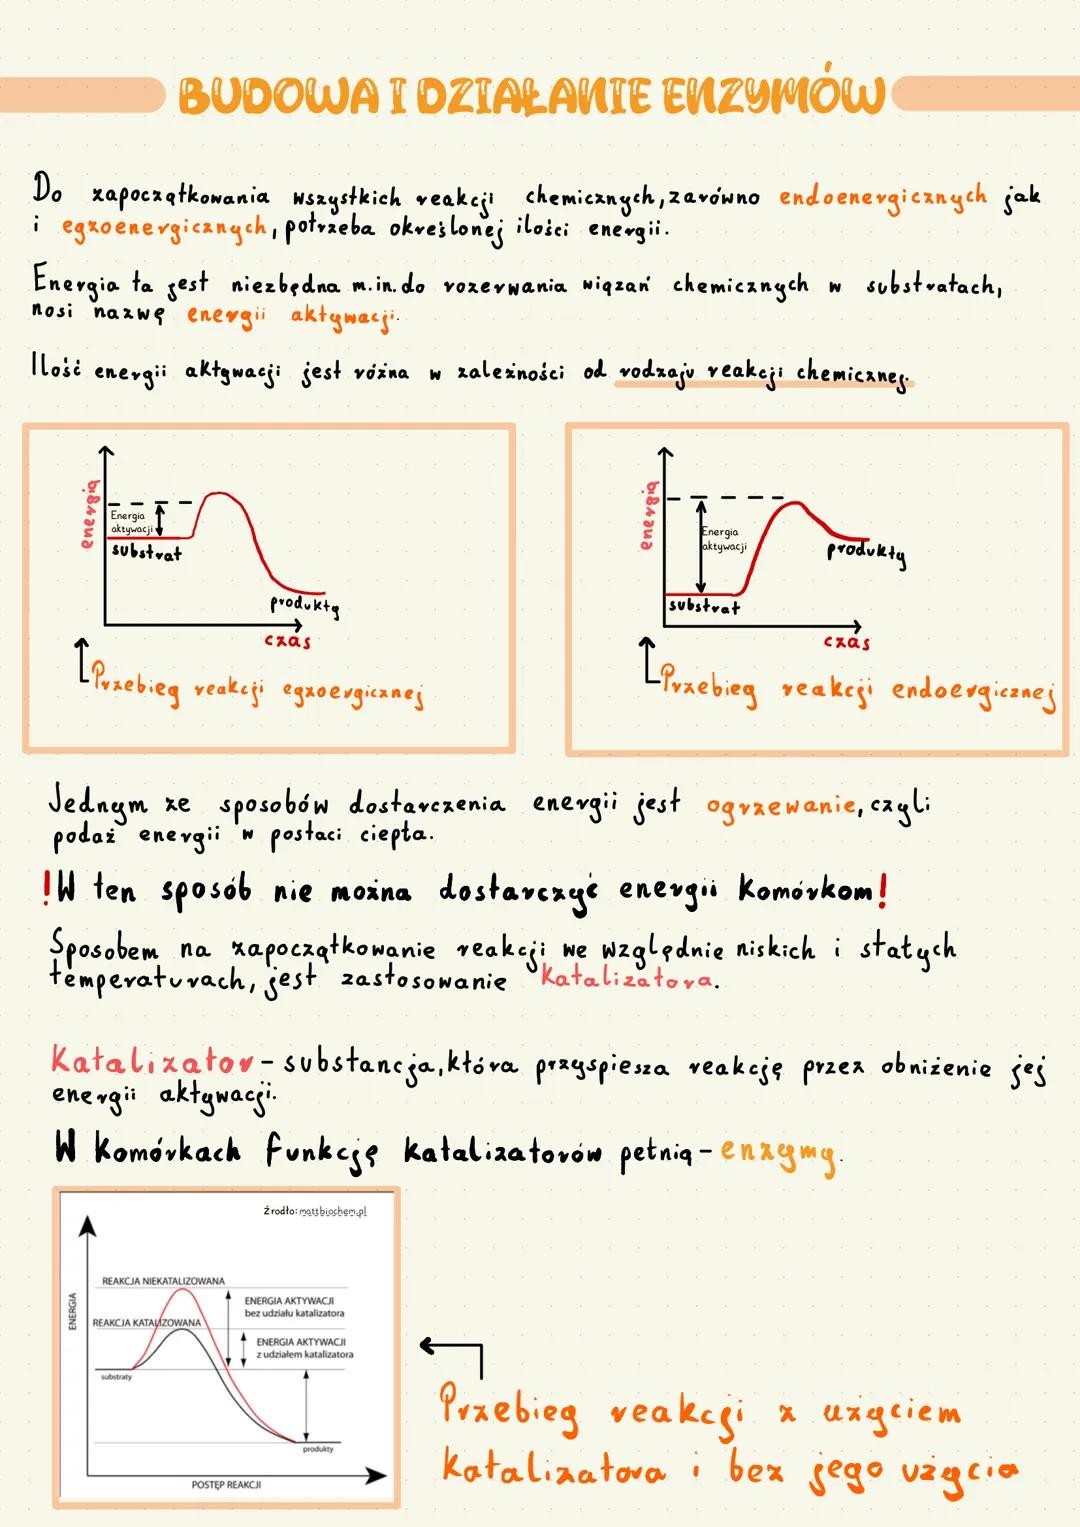 BUDOWA I DZIAŁANIE ENZYMÓW
Do zapoczątkowania wszystkich reakcji chemicznych, zarówno endoenergicznych jak
i egzoenergicznych, potrzeba określonej ilości energii.
Energia ta jest niezbędna m.in. do rozerwania wiązań chemicznych w substratach,
nosi nazwę energii aktywacji.
Ilość energii aktywacji jest różna w zależności od rodzaju reakcji chemicznej.
energia
Energia
aktywacji
substrat
produkty
czas
Przebieg reakcji egzoergicznej
energia
Energia
aktywacji
produkty
substrat
czas
Przebieg reakcji endoergicznej
Jednym ze sposobów dostarczenia energii jest ogrzewanie, czyli
podaż energii w postaci ciepła.
!W ten sposób nie można dostarczyć energii komórkom!
Sposobem na zapoczątkowanie reakcji we względnie niskich i stałych
temperaturach, jest zastosowanie katalizatora.
Katalizator - substancja, która przyspiesza reakcję przez obniżenie jej
energii aktywacji.
W komórkach funkcję katalizatorów pełnią - enzymy.
Źrodło: mattbiochem.pl
ENERGIA
REAKCJA NIEKATALIZOWANA
ENERGIA AKTYWACJI
bez udziału katalizatora
REAKCJA KATALIZOWANA
ENERGIA AKTYWACJI
z udziałem katalizatora
substraty
produkty
POSTĘP REAKCJI
Przebieg reakcji z użyciem
katalizatora i bez jego użycia